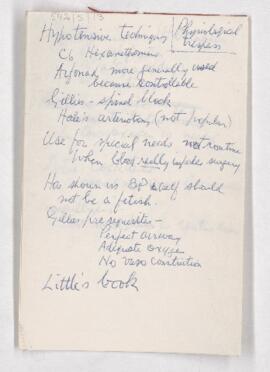 542/5/13
Hypotensive techniques
Physiological trespass
C6 Hexamethonium
Arfonad, more generally used
because controllable
Gillies - spinal block
Hale's arteriotomy (not popular)
Use for special needs not routine
When blood really impedes surgery
Has shown us BP itself should
not be a fetish.
Gillies prerequisites -
Perfect airway
Adequate oxygen
No vaso constriction
Little's book